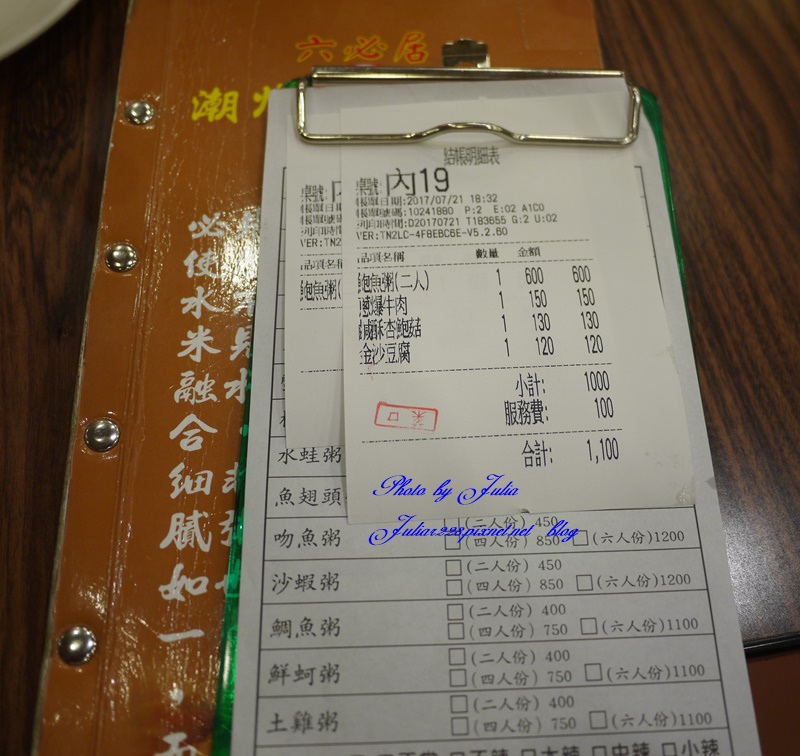 六必居
潮州
必
使
水
米
融
合
細
膩
如
一
結帳明細表
桌號:內19
帳單日期:2017/07/21 18:32
帳單號碼:10241880 P:2 E:02 A1C0
列印時間:D20170721 T183655 G:2 U:02
VER:TN2LC-4F8EBC6E-V5.2.60
品項名稱 數量 金額
鮑魚粥(二人) 1 600 600
蔥爆牛肉 1 150 150
鹹酥杏鮑菇 1 130 130
金沙豆腐 1 120 120
小計: 1000
服務費: 100
合計: 1,100
VER:TN2
品項名稱
鮑魚粥(
水蛙粥
魚翅頭
Photo by Julia
Julia1228.pixnet.net blog
吻魚粥 □(二人份) 450
□(四人份) 850 □(六人份)1200
沙蝦粥 □(二人份) 450
□(四人份) 850 □(六人份)1200
鯛魚粥 □(二人份) 400
□(四人份) 750 □(六人份)1100
鮮蚵粥 □(二人份) 400
□(四人份) 750 □(六人份)1100
土雞粥 □(二人份) 400
□(四人份) 750 □(六人份)1100
□不辣 □大辣 □中辣 □小辣